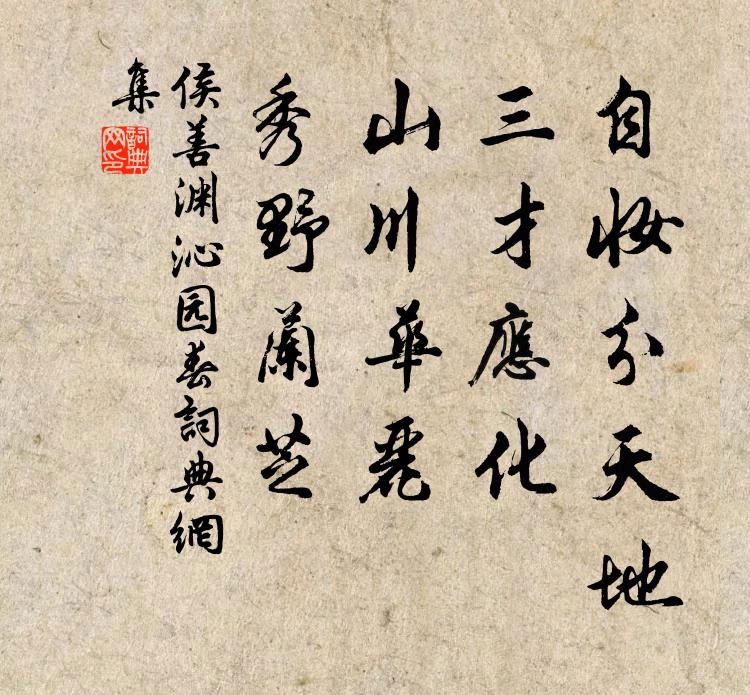 自妝分天地
三才應化
山川華麗
秀野蘭芝
侯善渊沁园春詞典網
集
詞典
网印